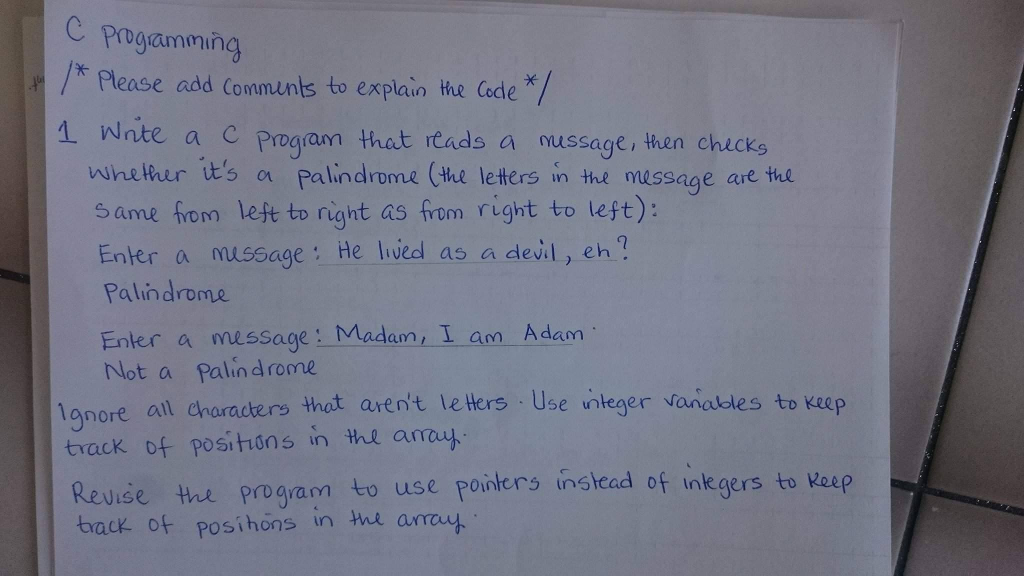 C Programming
/* Please add Comments to explain the Code */
1 Write a C program that reads a message, then checks
whether it's a palindrome (the letters in the message are the
same from left to right as from right to left):
Enter a message: He lived as a devil, eh?
Palindrome
Enter a message: Madam, I am Adam.
Not a palindrome
Ignore all characters that aren't letters. Use integer variables to keep
track of positions in the array.
Revise the program to use pointers instead of integers to keep
track of positions in the array.